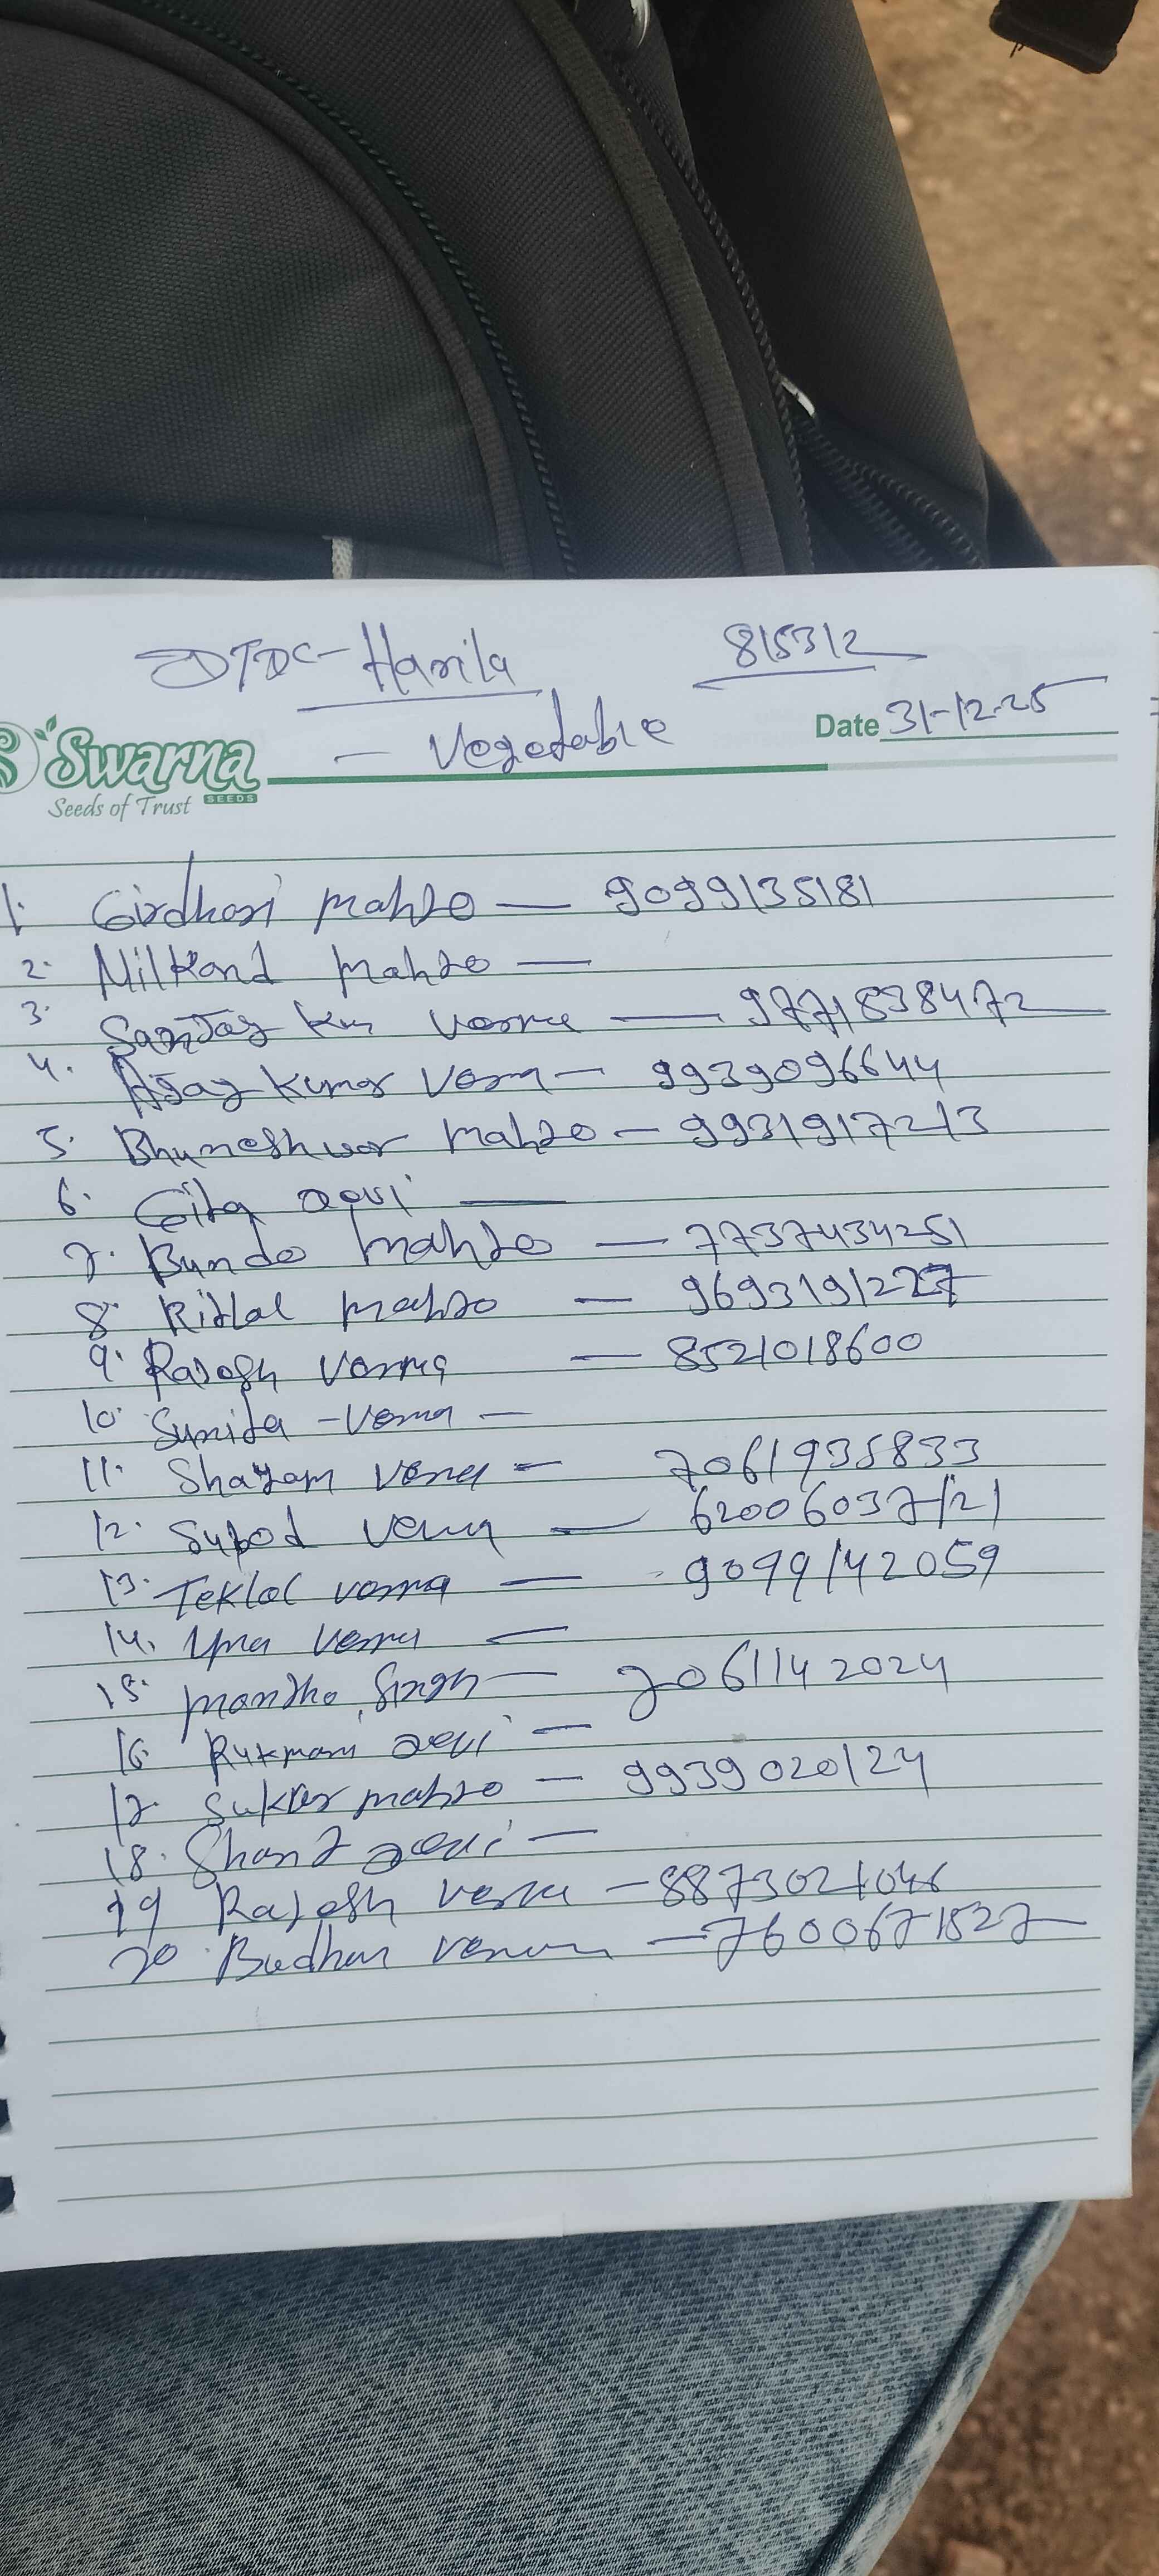 DTDC - Harila 815312
- Vegetable
Date 31-12-25
Swarna
Seeds of Trust SEEDS
1. Girdhari Mahto — 9099135181
2. Nilkand Mahto —
3. Sanjay Km Verma — 9771838472
4. Ajay Kumar Verma — 9939096644
5. Bhuneshwar Mahto — 9931917213
6. Gita Devi —
7. Bundo Mahto — 7737434251
8. Ritlal Mahto — 9693191227
9. Rajesh Verma — 8521018600
10. Sunita - Verma —
11. Shayam Verma — 7061935833
12. Subod Verma — 62006037121
13. Teklal Verma — 9099142059
14. Uma Verma —
15. Mantho Singh — 7061142024
16. Rukmani Devi —
17. Sukar Mahto — 9939020124
18. Shant Devi —
19 Rajesh Verma — 8873021046
20. Budhan Verma — 7600671527